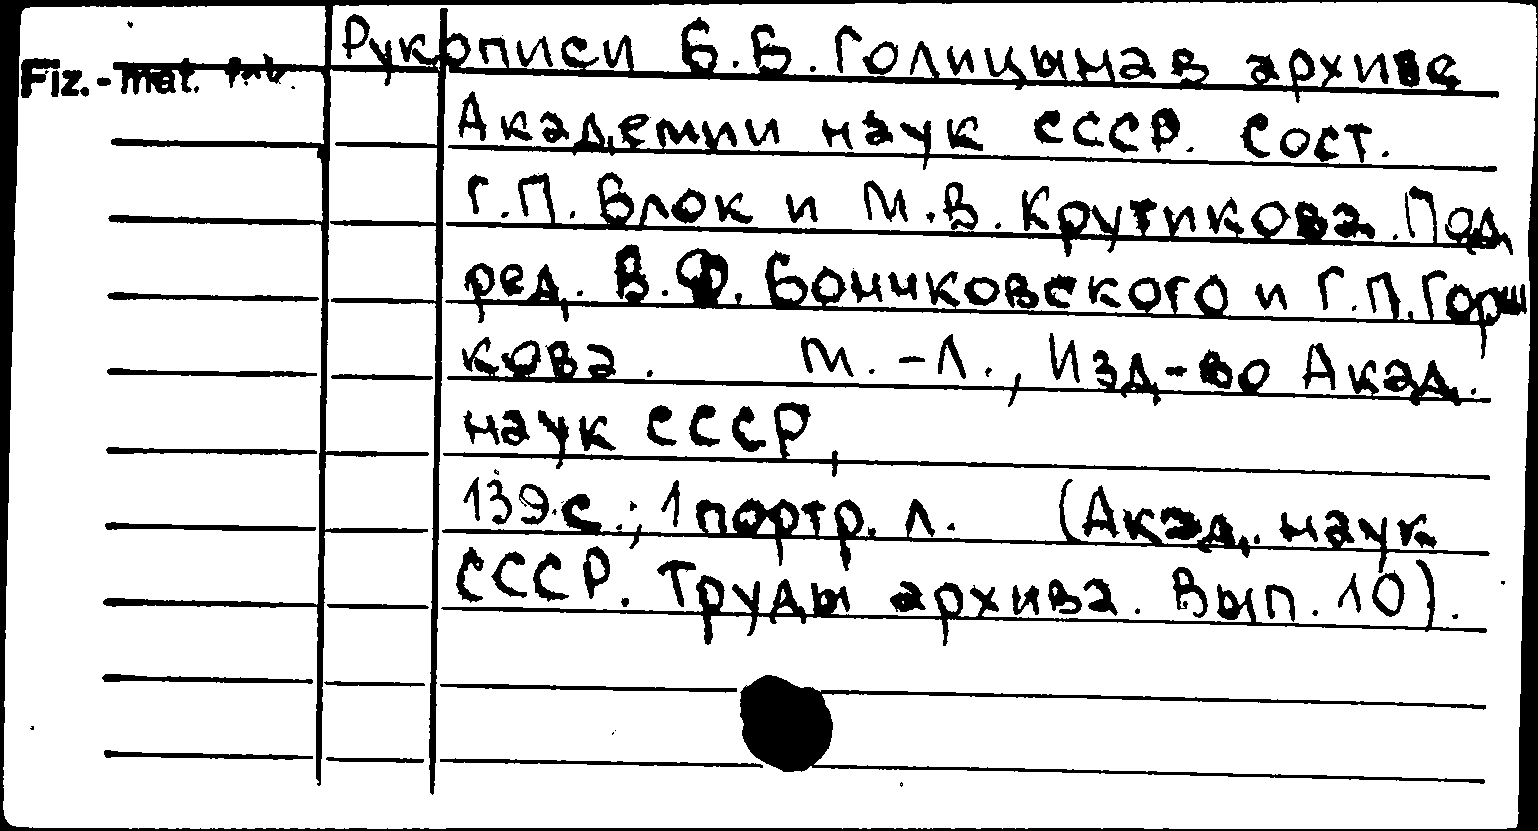 Рукописи Б.Б. Голицына в архиве
Fiz.-mat.
Академии наук СССР. Сост.
Г.П. Блок и М.В. Крутикова. Под
ред. В.Ф. Бончковского и Г.П. Горш
кова. М.-Л., Изд-во Акад.
наук СССР,
139 с.; 1 портр. л. (Акад. наук
СССР. Труды архива. Вып. 10).